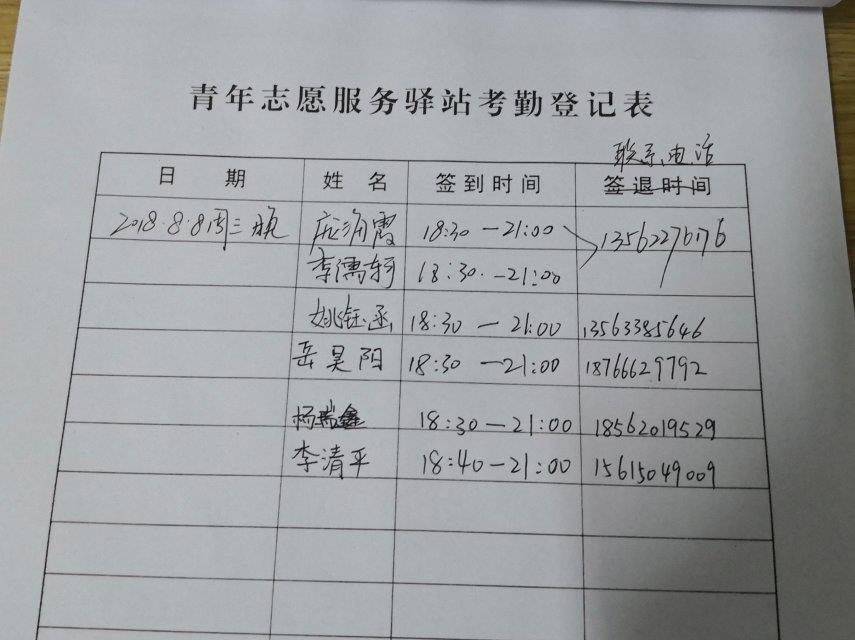 青年志愿服务驿站考勤登记表
联系电话
日 期 姓 名 签到时间 签退时间
2018.8.8周三晚 霞 18:30 — 21:00 13562276176
李濡轲 18:30. — 21:00
姚钰函 18:30 — 21:00 13563385646
岳昊阳 18:30 — 21:00 18766629792
杨瑞鑫 18:30 — 21:00 18562019529
李清平 18:40 — 21:00 15615049009